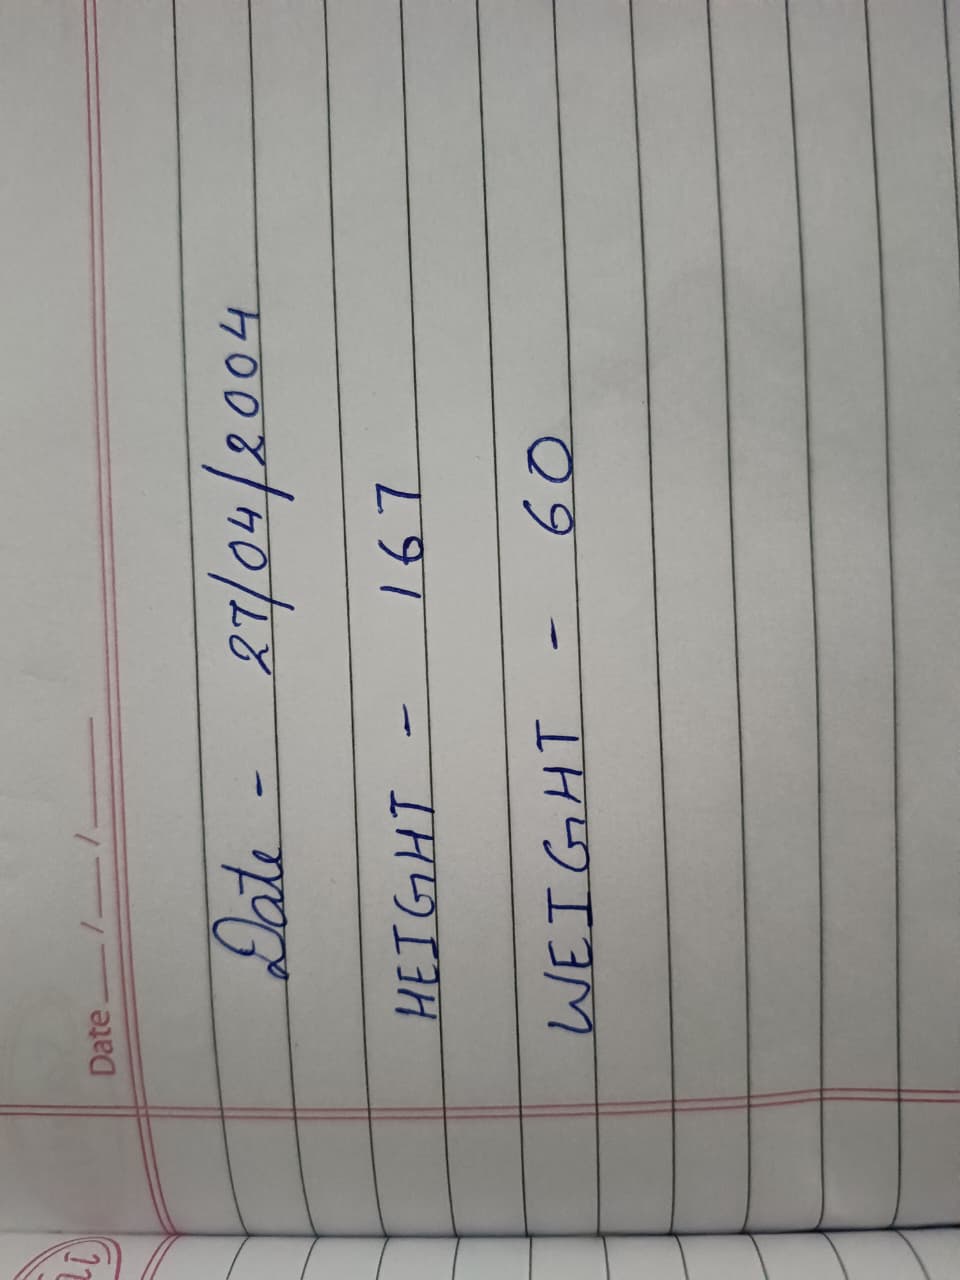 Date __/__/__
Date - 27/04/2004
HEIGHT - 167
WEIGHT - 60